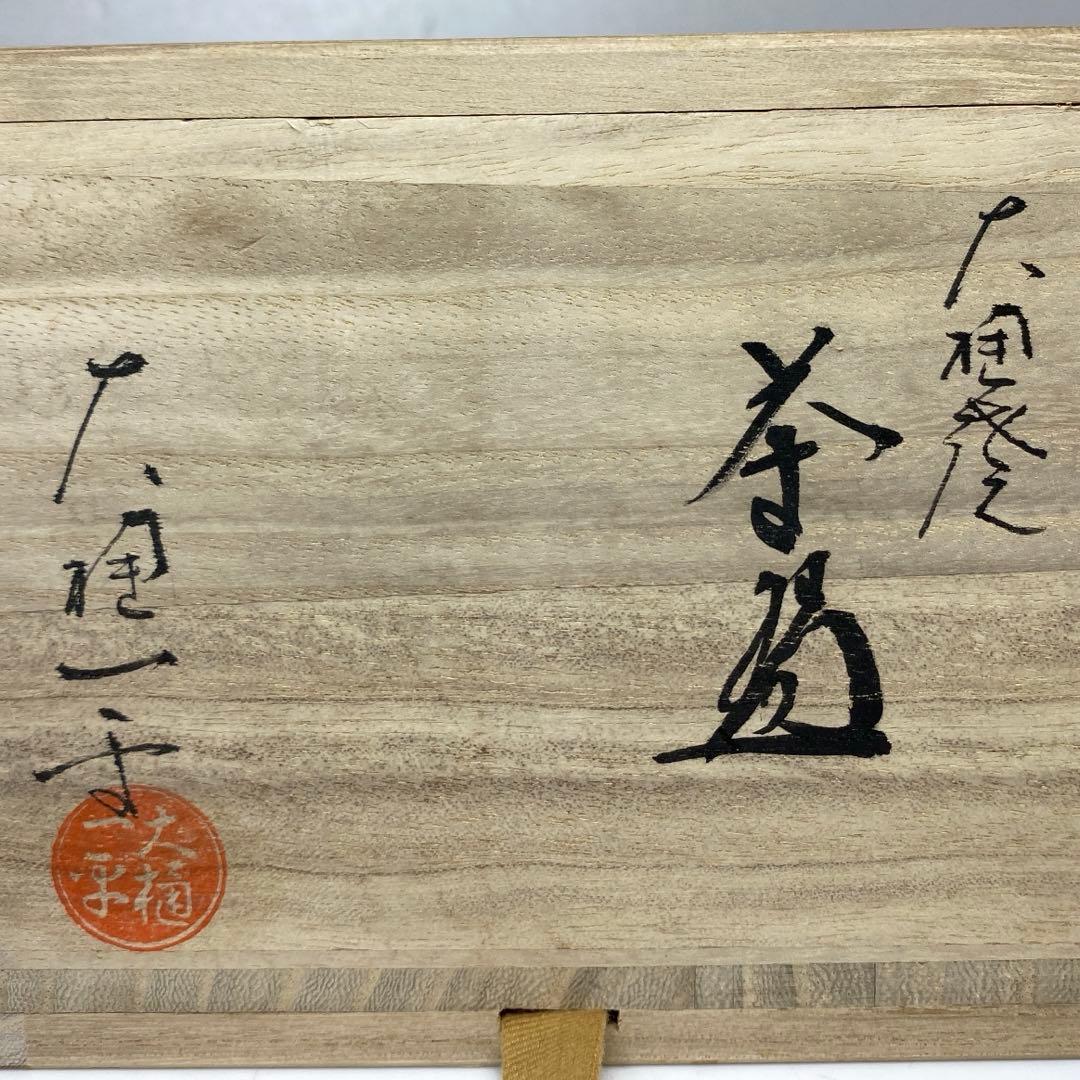 大樋焼
茶盌
大樋一平
大樋
一平